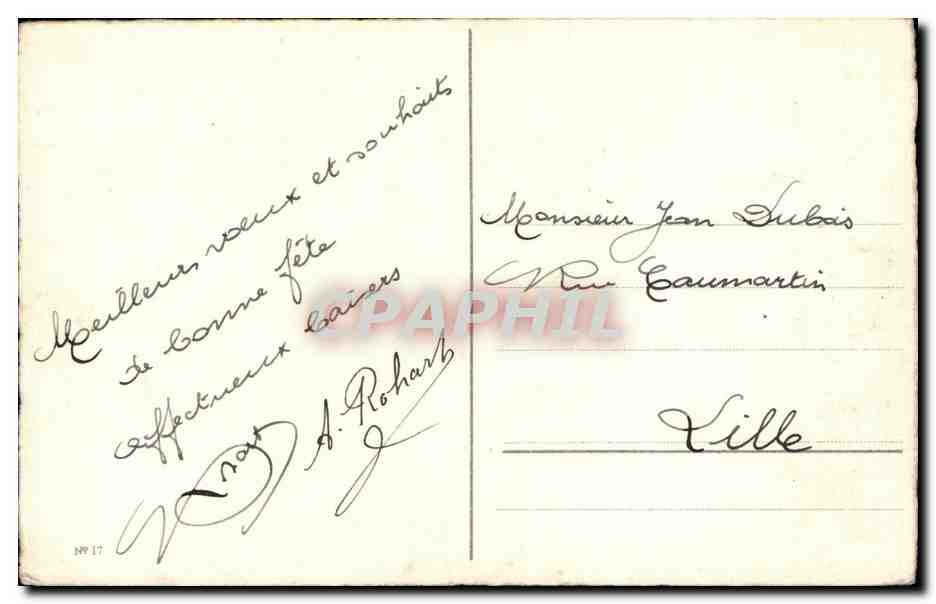 Meilleurs voeux et souhaits
de bonne fête
affectueux baisers
A. Rohart
Nº 17
Monsieur Jean Dubois
Rue Caumartin
Lille
CPAPHIL